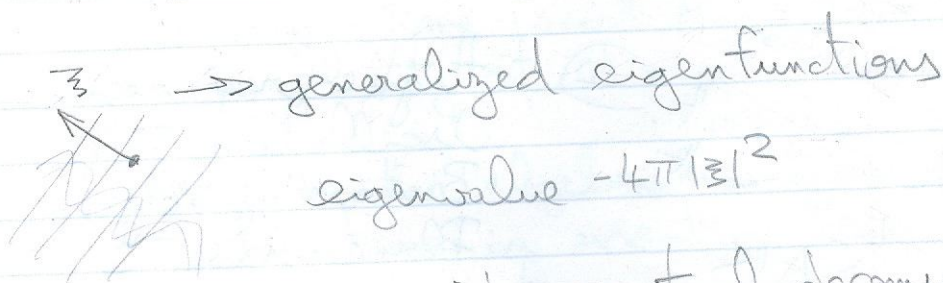 ξ → generalized eigenfunctions
eigenvalue -4π|ξ|²